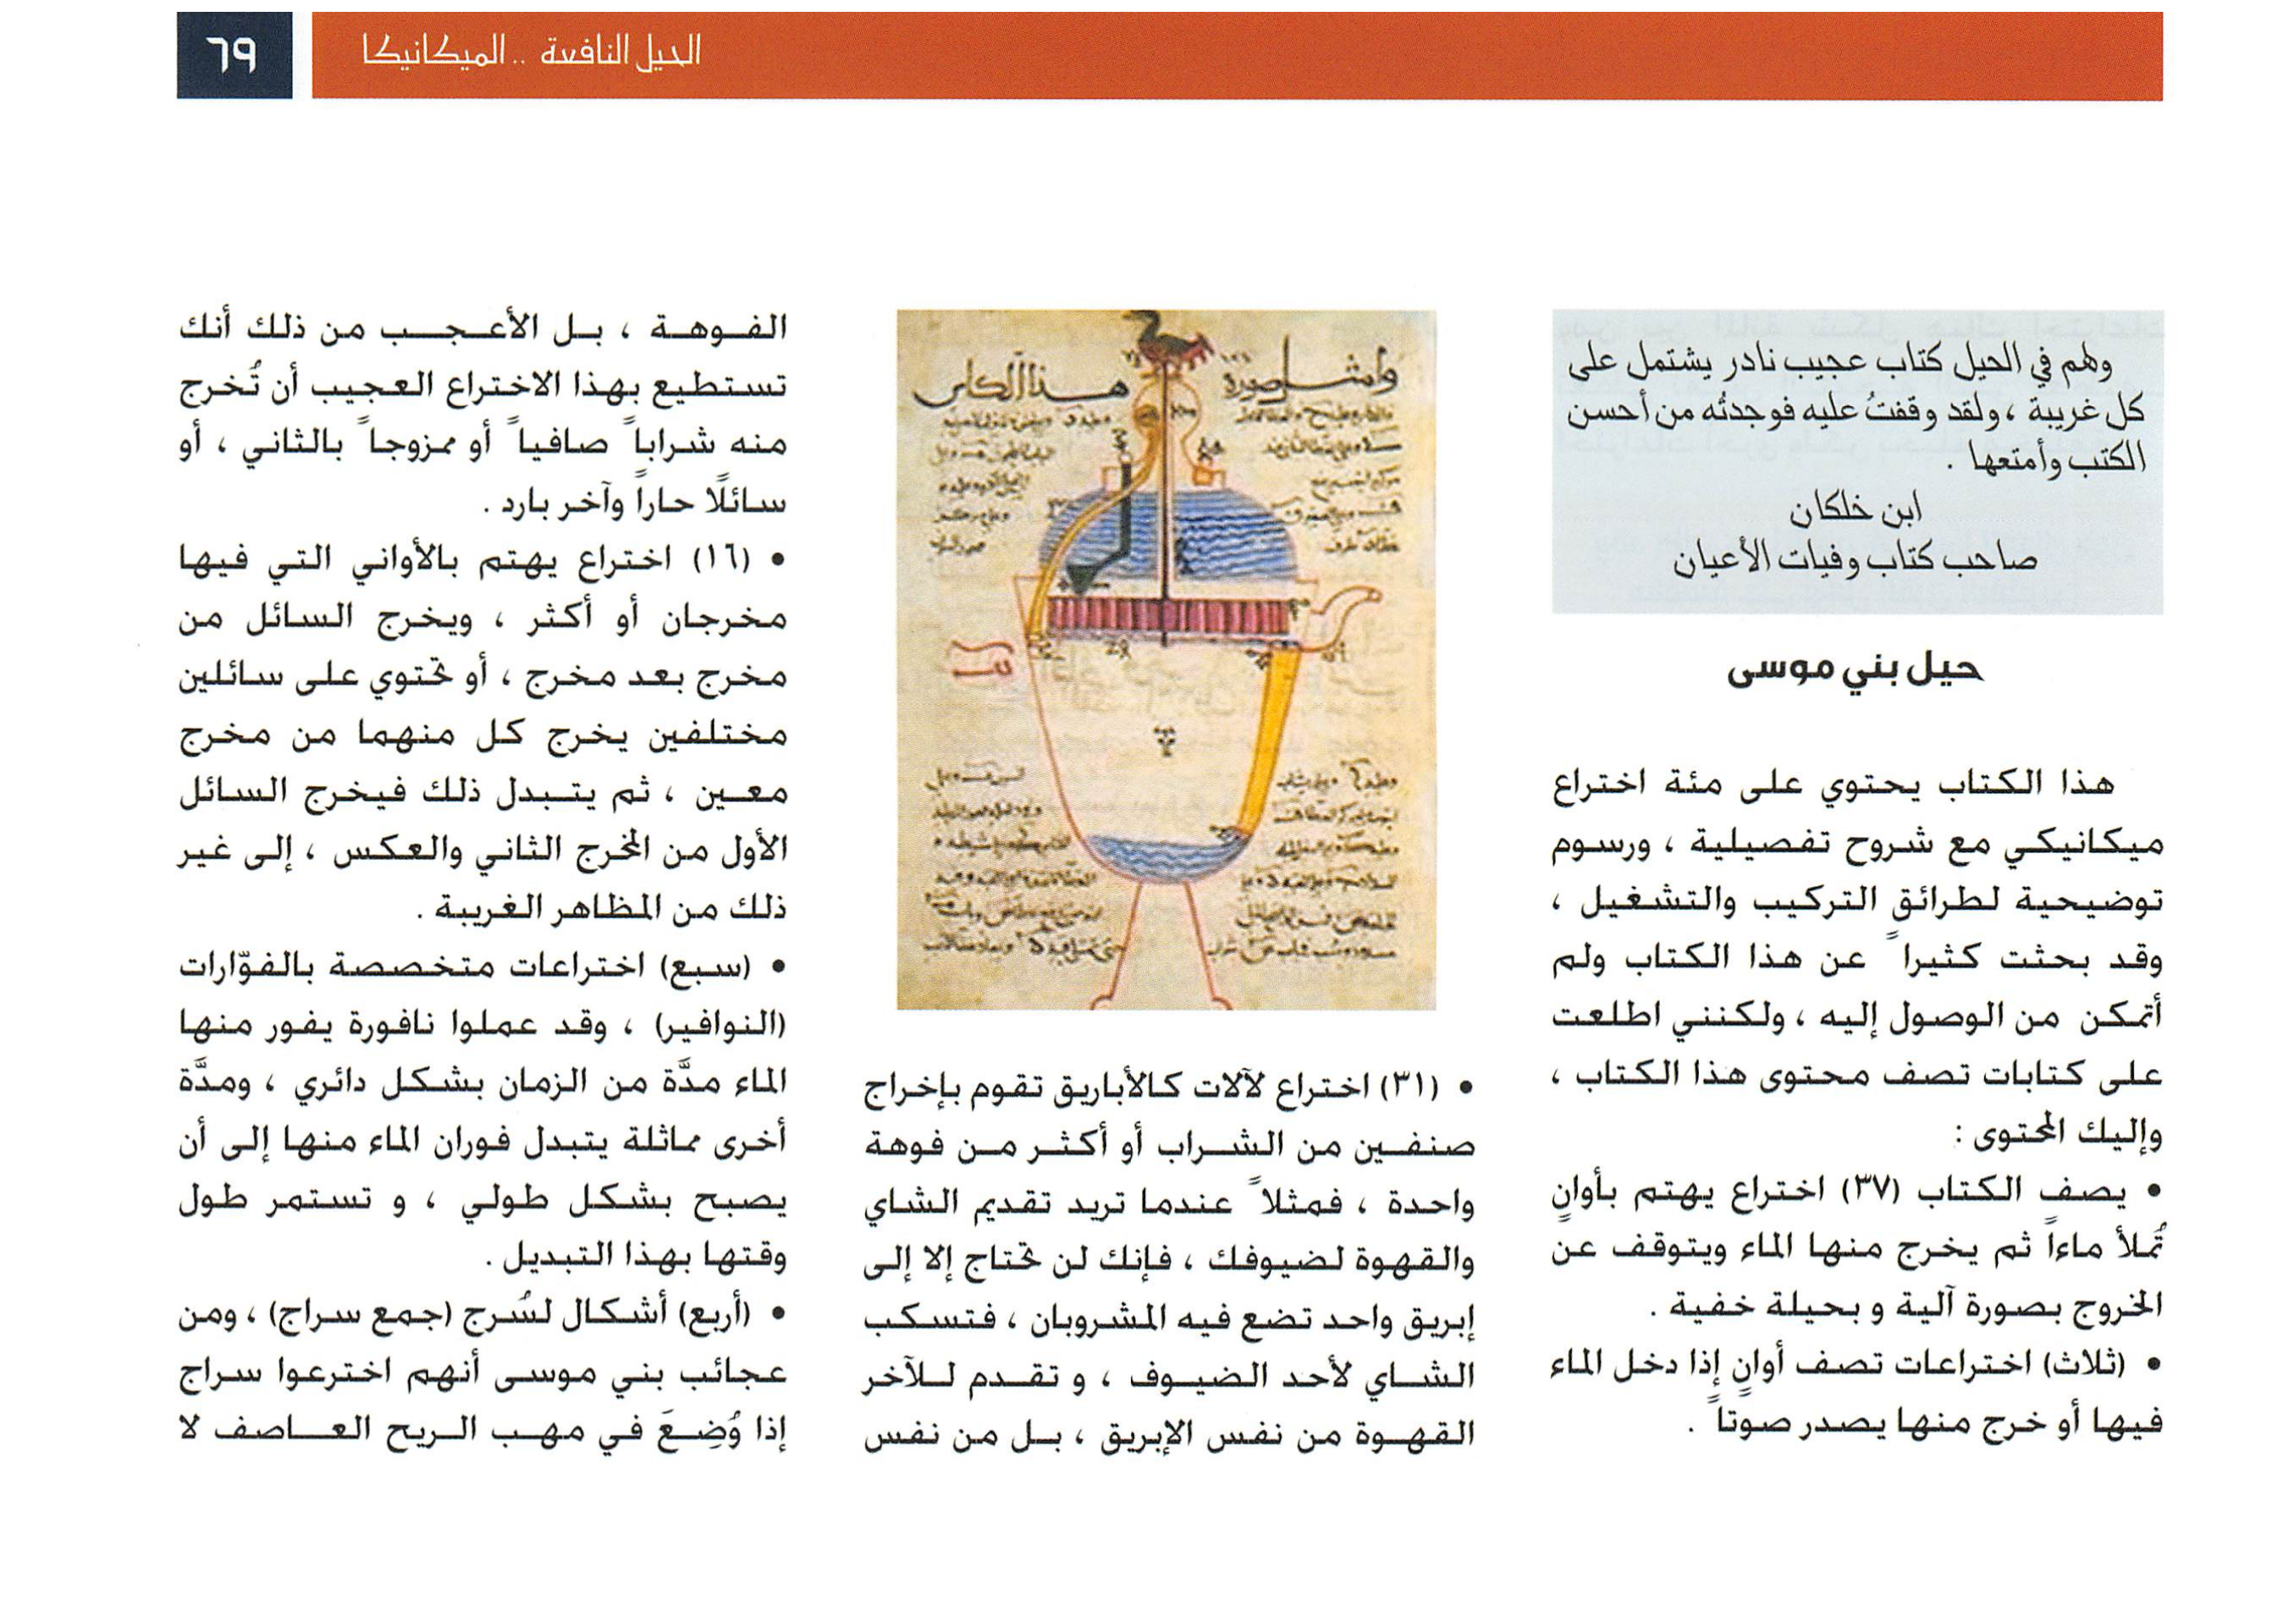 الحيل النافعة .. الميكانيكا
٦٩
وهم في الحيل كتاب عجيب نادر يشتمل على
كل غريبة ، ولقد وقفتُ عليه فوجدتُه من أحسن
الكتب وأمتعها .
ابن خلكان
صاحب كتاب وفيات الأعيان
حيل بني موسى
هذا الكتاب يحتوي على مئة اختراع
ميكانيكي مع شروح تفصيلية ، ورسوم
توضيحية لطرائق التركيب والتشغيل ،
وقد بحثت كثيراً عن هذا الكتاب ولم
أتمكن من الوصول إليه ، ولكنني اطلعت
على كتابات تصف محتوى هذا الكتاب ،
وإليك المحتوى :
• يصف الكتاب (٣٧) اختراع يهتم بأوانٍ
تُملأ ماءاً ثم يخرج منها الماء ويتوقف عن
الخروج بصورة آلية و بحيلة خفية .
• (ثلاث) اختراعات تصف أوانٍ إذا دخل الماء
فيها أو خرج منها يصدر صوتاً .
وامثل صورة
هذا الكاس
• (٣١) اختراع لآلات كالأباريق تقوم بإخراج
صنفين من الشراب أو أكثر من فوهة
واحدة ، فمثلاً عندما تريد تقديم الشاي
والقهوة لضيوفك ، فإنك لن تحتاج إلا إلى
إبريق واحد تضع فيه المشروبان ، فتسكب
الشاي لأحد الضيوف ، و تقدم للآخر
القهوة من نفس الإبريق ، بل من نفس
الفوهة ، بل الأعجب من ذلك أنك
تستطيع بهذا الاختراع العجيب أن تُخرج
منه شراباً صافياً أو ممزوجاً بالثاني ، أو
سائلًا حاراً وآخر بارد .
• (١٦) اختراع يهتم بالأواني التي فيها
مخرجان أو أكثر ، ويخرج السائل من
مخرج بعد مخرج ، أو تحتوي على سائلين
مختلفين يخرج كل منهما من مخرج
معين ، ثم يتبدل ذلك فيخرج السائل
الأول من المخرج الثاني والعكس ، إلى غير
ذلك من المظاهر الغريبة .
• (سبع) اختراعات متخصصة بالفوّارات
(النوافير) ، وقد عملوا نافورة يفور منها
الماء مدَّة من الزمان بشكل دائري ، ومدَّة
أخرى مماثلة يتبدل فوران الماء منها إلى أن
يصبح بشكل طولي ، و تستمر طول
وقتها بهذا التبديل .
• (أربع) أشكال لسُرج (جمع سراج) ، ومن
عجائب بني موسى أنهم اخترعوا سراج
إذا وُضِعَ في مهب الريح العاصف لا